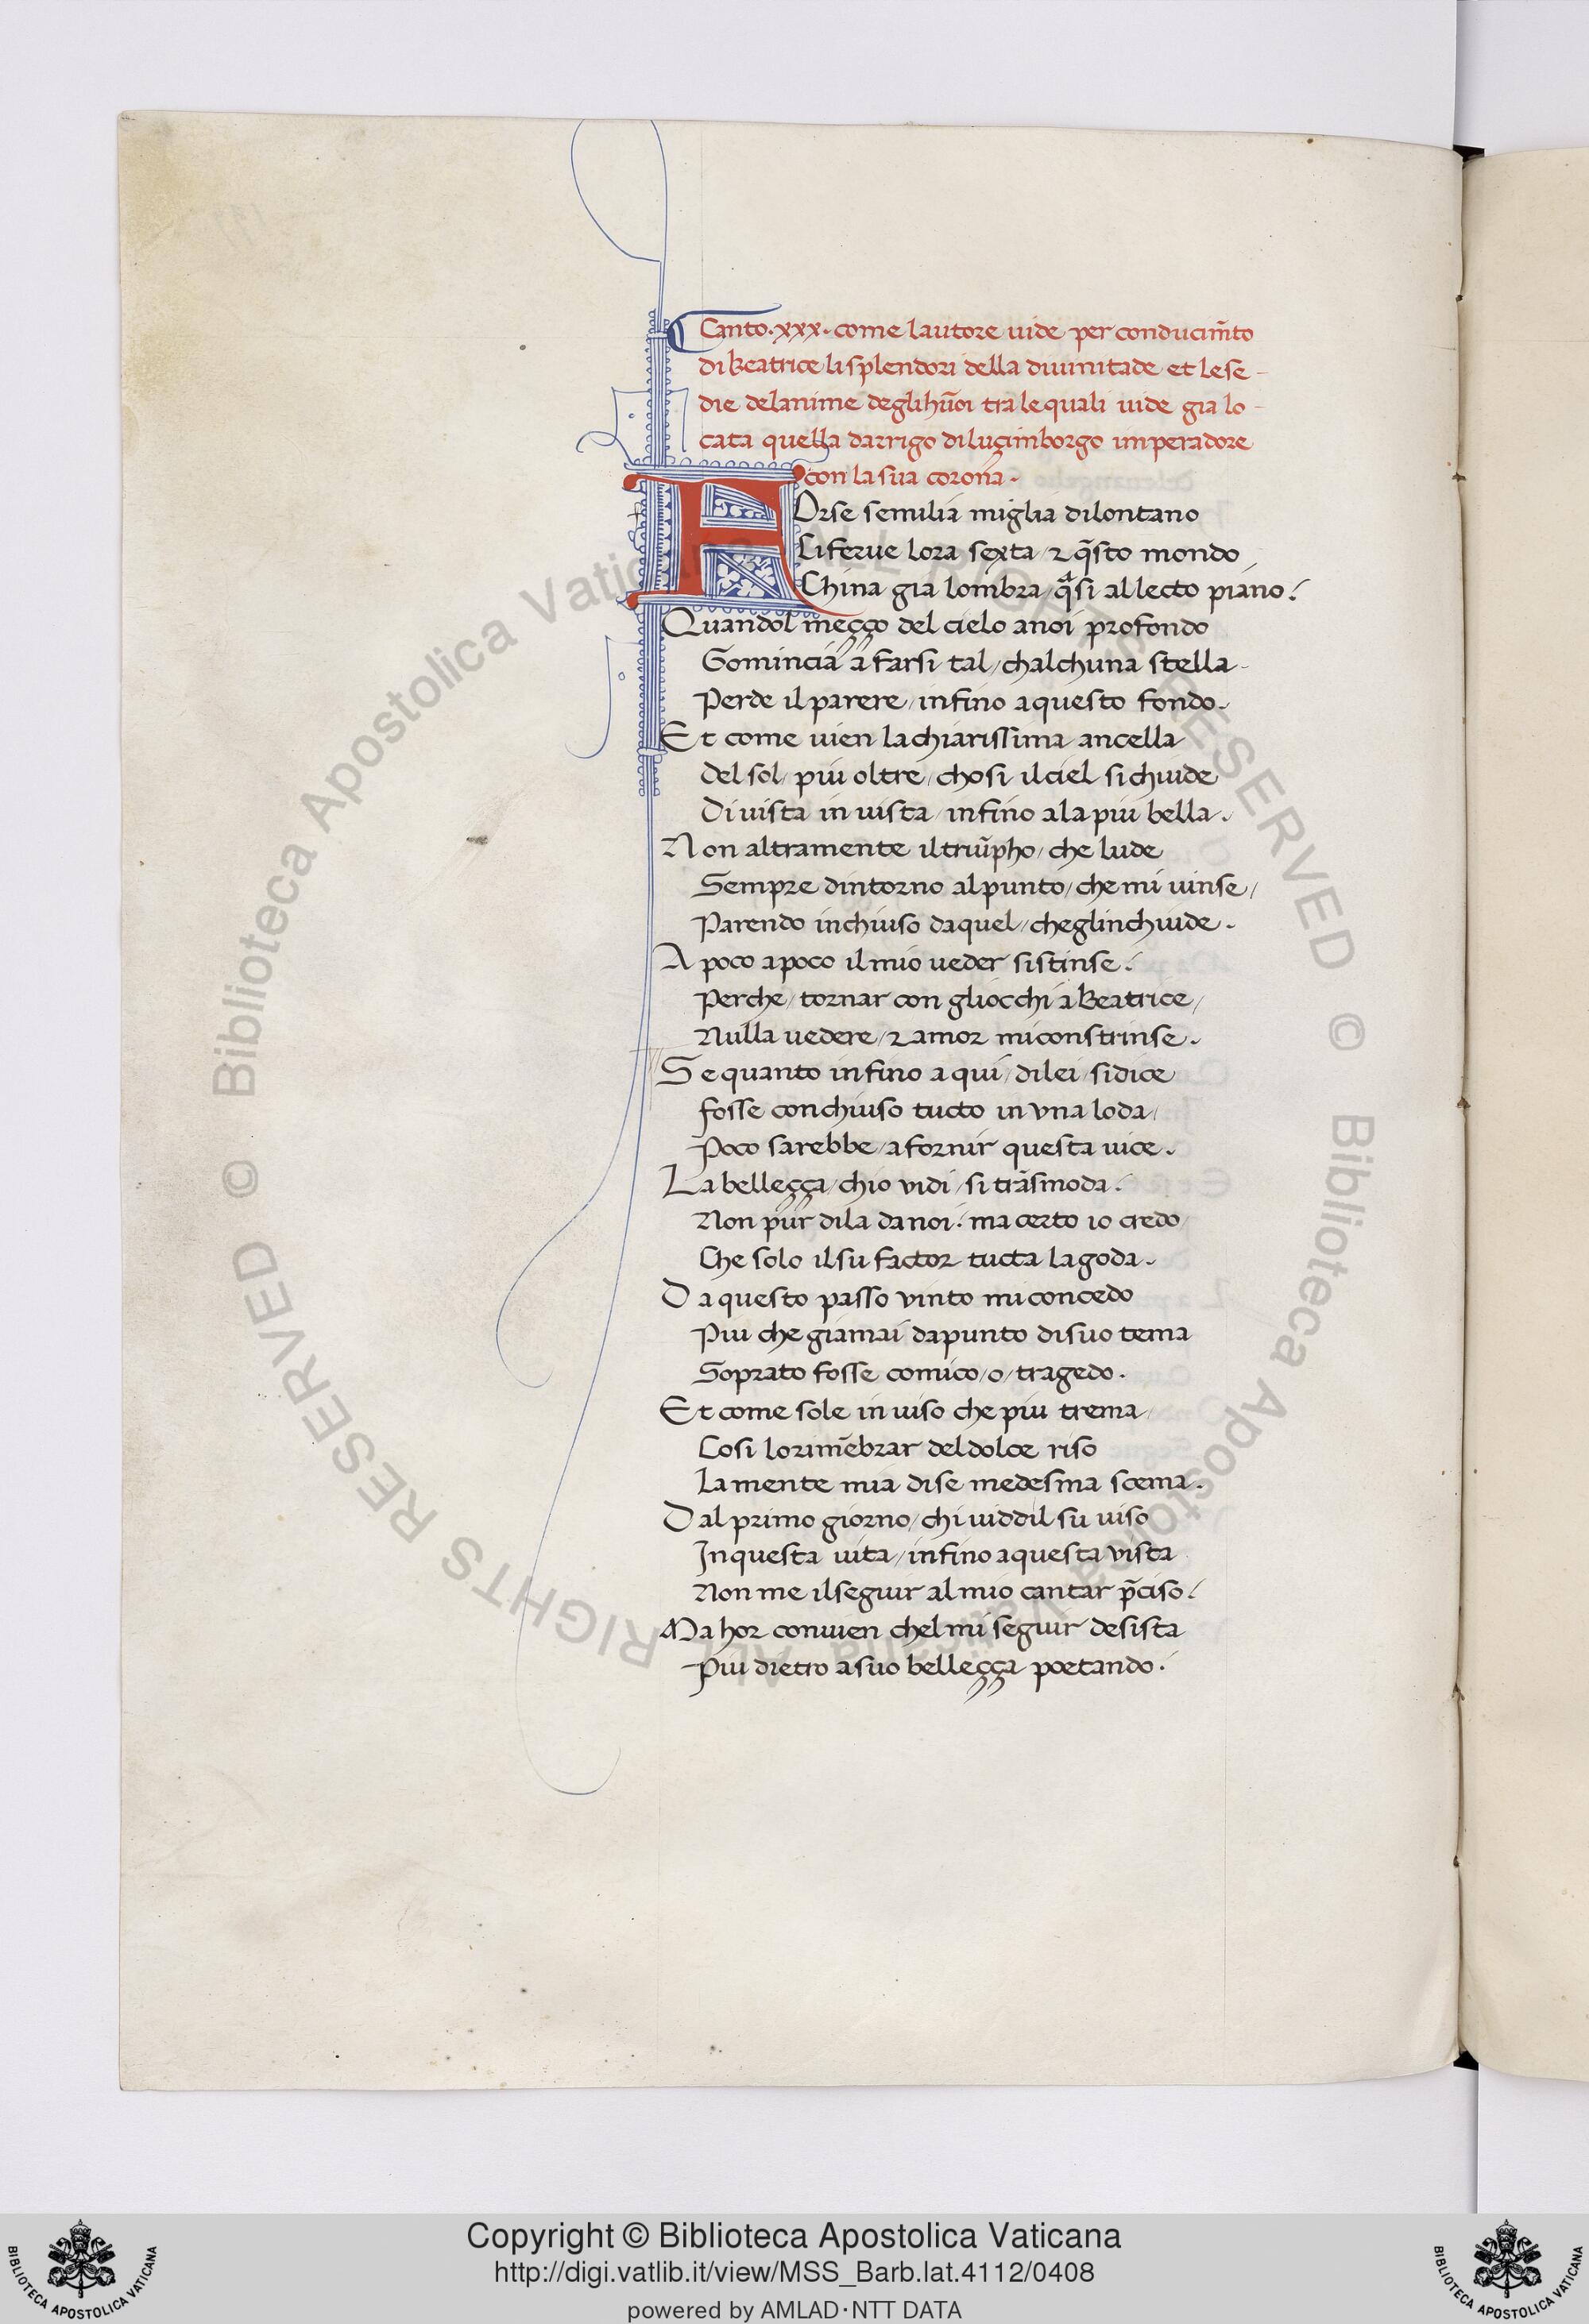 Canto·xxx· come lautore uide per conducim̄to
di Beatrice li splendori della diuinitade et le se-
die delanime degli hūoi tra le quali uide gia lo-
cata quella darrigo di luçimborgo imperadore
con la sua corona·
FOrse semilia miglia dilontano
Ci ferue lora sexta/ ⁊ q̄sto mondo
China gia lombra/ qᵃsi al lecto piano:
Quandol meçço del cielo a noi profondo
Comincia a farsi tal/ chalchuna stella
Perde il parere/ infino a questo fondo·
Et come uien la chiarissima ancella
del sol/ piu oltre/ chosi il ciel si chiude
Di uista in uista/ infino a la piu bella·
Non altramente il triūpho/ che lude
Sempre dintorno al punto/ che mi uinse/
Parendo inchiuso da quel/ cheglinchiude·
A poco a poco il mio ueder sistinse:
Perche/ tornar con gliocchi a Beatrice/
Nulla uedere/ ⁊ amor mi constrinse·
Se quanto infino a qui/ di lei/ si dice
fosse conchiuso tucto in vna loda/
Poco sarebbe/ a fornir questa uice·
La belleçça/ chio vidi/ si trāsmoda:
Non pur di la da noi: ma certo io credo/
Che solo il su factor tucta la goda·
Da questo passo vinto mi concedo
Piu che giamai da punto di suo tema
Soprato fosse comico/ o/ tragedo·
Et come sole in uiso che piu trema/
Cosi lo rimēbrar del dolce riso
La mente mia di se medesma scema·
Dal primo giorno/ chi uiddil su uiso
In questa uita/ infino a questa vista
Non me il seguir al mio cantar p̄ciso:
Ma hor conuien chel mi seguir desista
Piu dietro a suo belleçça poetando:
© Biblioteca Apostolica Vaticana ALL RIGHTS RESERVED © Biblioteca Apostolica Vaticana ALL RIGHTS RESERVED
BIBLIOTECA APOSTOLICA VATICANA
Copyright © Biblioteca Apostolica Vaticana
http://digi.vatlib.it/view/MSS_Barb.lat.4112/0408
powered by AMLAD·NTT DATA
BIBLIOTECA APOSTOLICA VATICANA